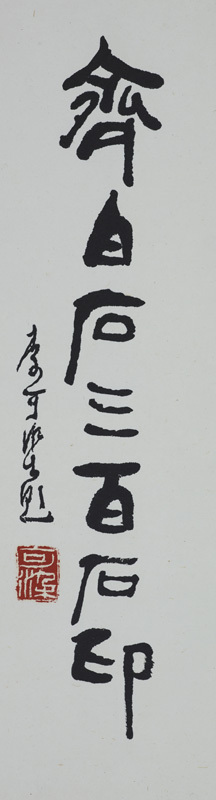 齊白石三百石印
李可染題
可染